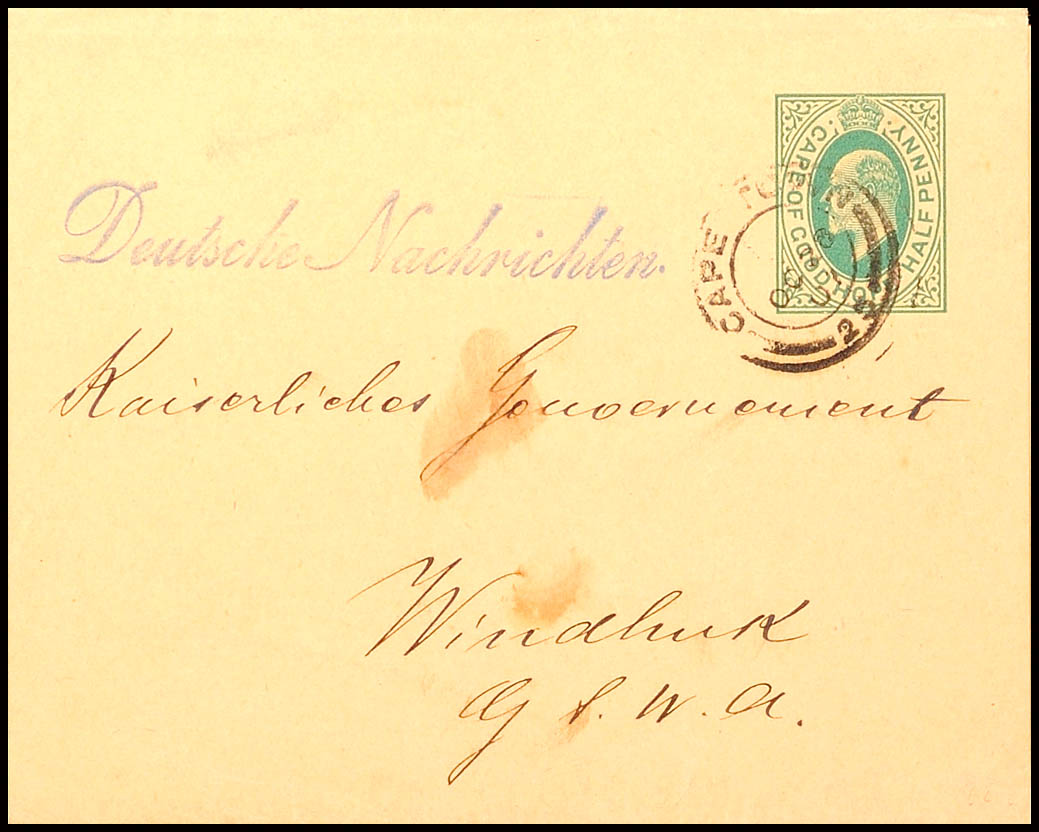 CAPE OF GOOD HOPE HALF PENNY
Deutsche Nachrichten.
CAPE TOWN
Kaiserliches Gouvernement
Windhuk
G S. W. A.